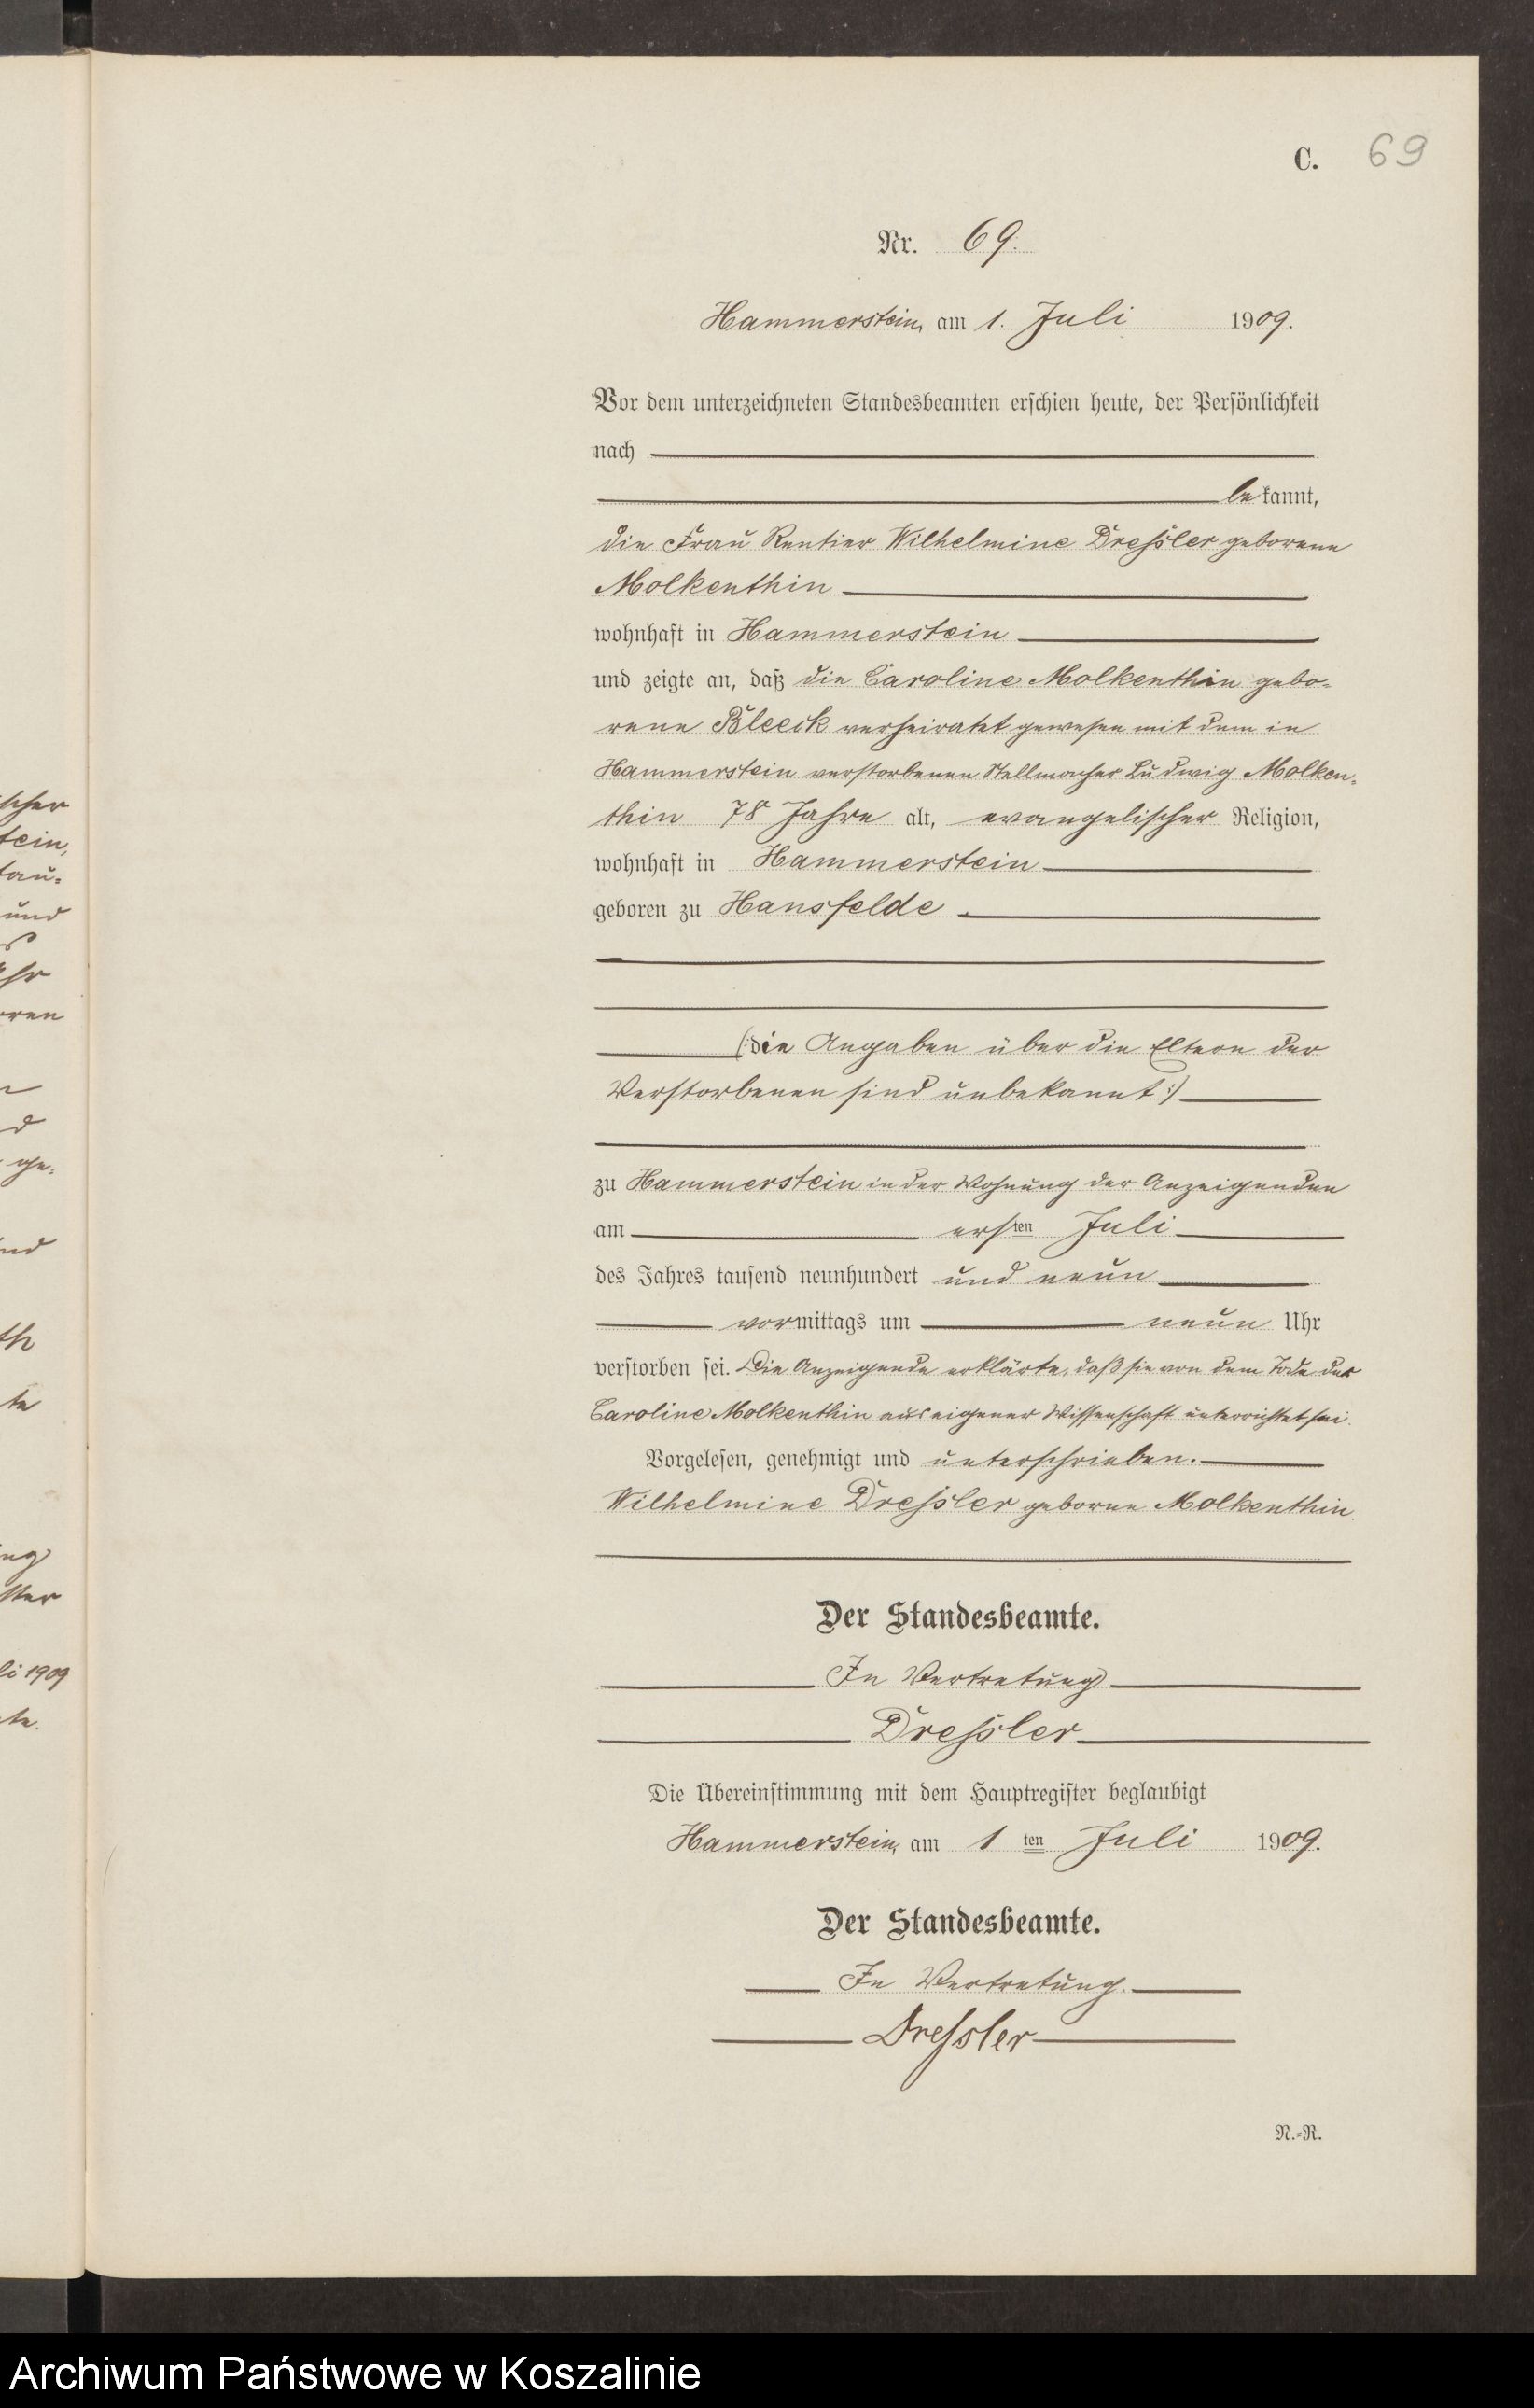 C. 69
Nr. 69.
Hammerstein, am 1. Juli 1909.
Vor dem unterzeichneten Standesbeamten erschien heute, der Persönlichkeit
nach
bekannt,
die Frau Rentier Wilhelmine Dressler geborene
Molkenthin
wohnhaft in Hammerstein
und zeigte an, daß die Caroline Molkenthin gebo-
rene Bleeck verheiratet gewesen mit dem in
Hammerstein verstorbenen Stellmacher Ludwig Molken-
thin 78 Jahre alt, evangelischer Religion,
wohnhaft in Hammerstein
geboren zu Hansfelde
(: die Angaben über die Eltern der
Verstorbenen sind unbekannt :)
zu Hammerstein in der Wohnung der Anzeigenden
am ersten Juli
des Jahres tausend neunhundert und neun
vormittags um neun Uhr
verstorben sei. Die Anzeigende erklärte, daß sie von dem Tode der
Caroline Molkenthin aus eigener Wissenschaft unterrichtet sei.
Vorgelesen, genehmigt und unterschrieben.
Wilhelmine Dressler geborne Molkenthin.
Der Standesbeamte.
In Vertretung
Dressler
Die Übereinstimmung mit dem Hauptregister beglaubigt
Hammerstein, am 1 ten Juli 1909.
Der Standesbeamte.
In Vertretung.
Dressler
N.-R.
scher
tein,
tau-
und
Uhr
ren
d
ge-
und
th
te
ung
ster
li 1909
te.
Archiwum Państwowe w Koszalinie